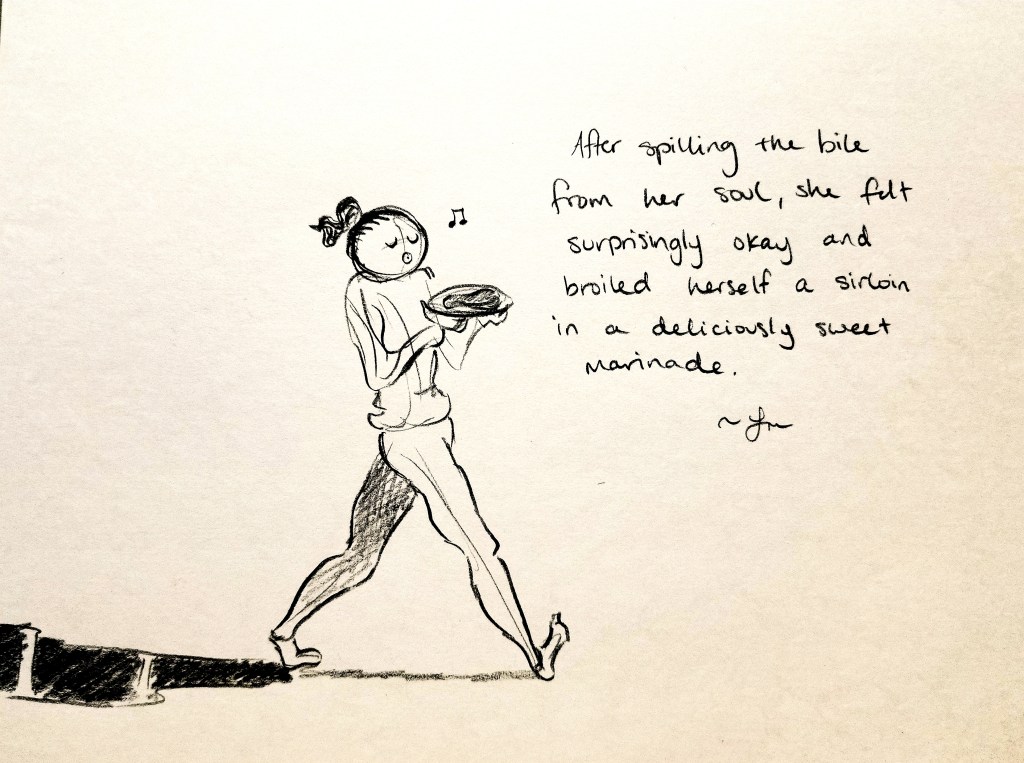 After spilling the bile
from her soul, she felt
surprisingly okay and
broiled herself a sirloin
in a deliciously sweet
marinade.